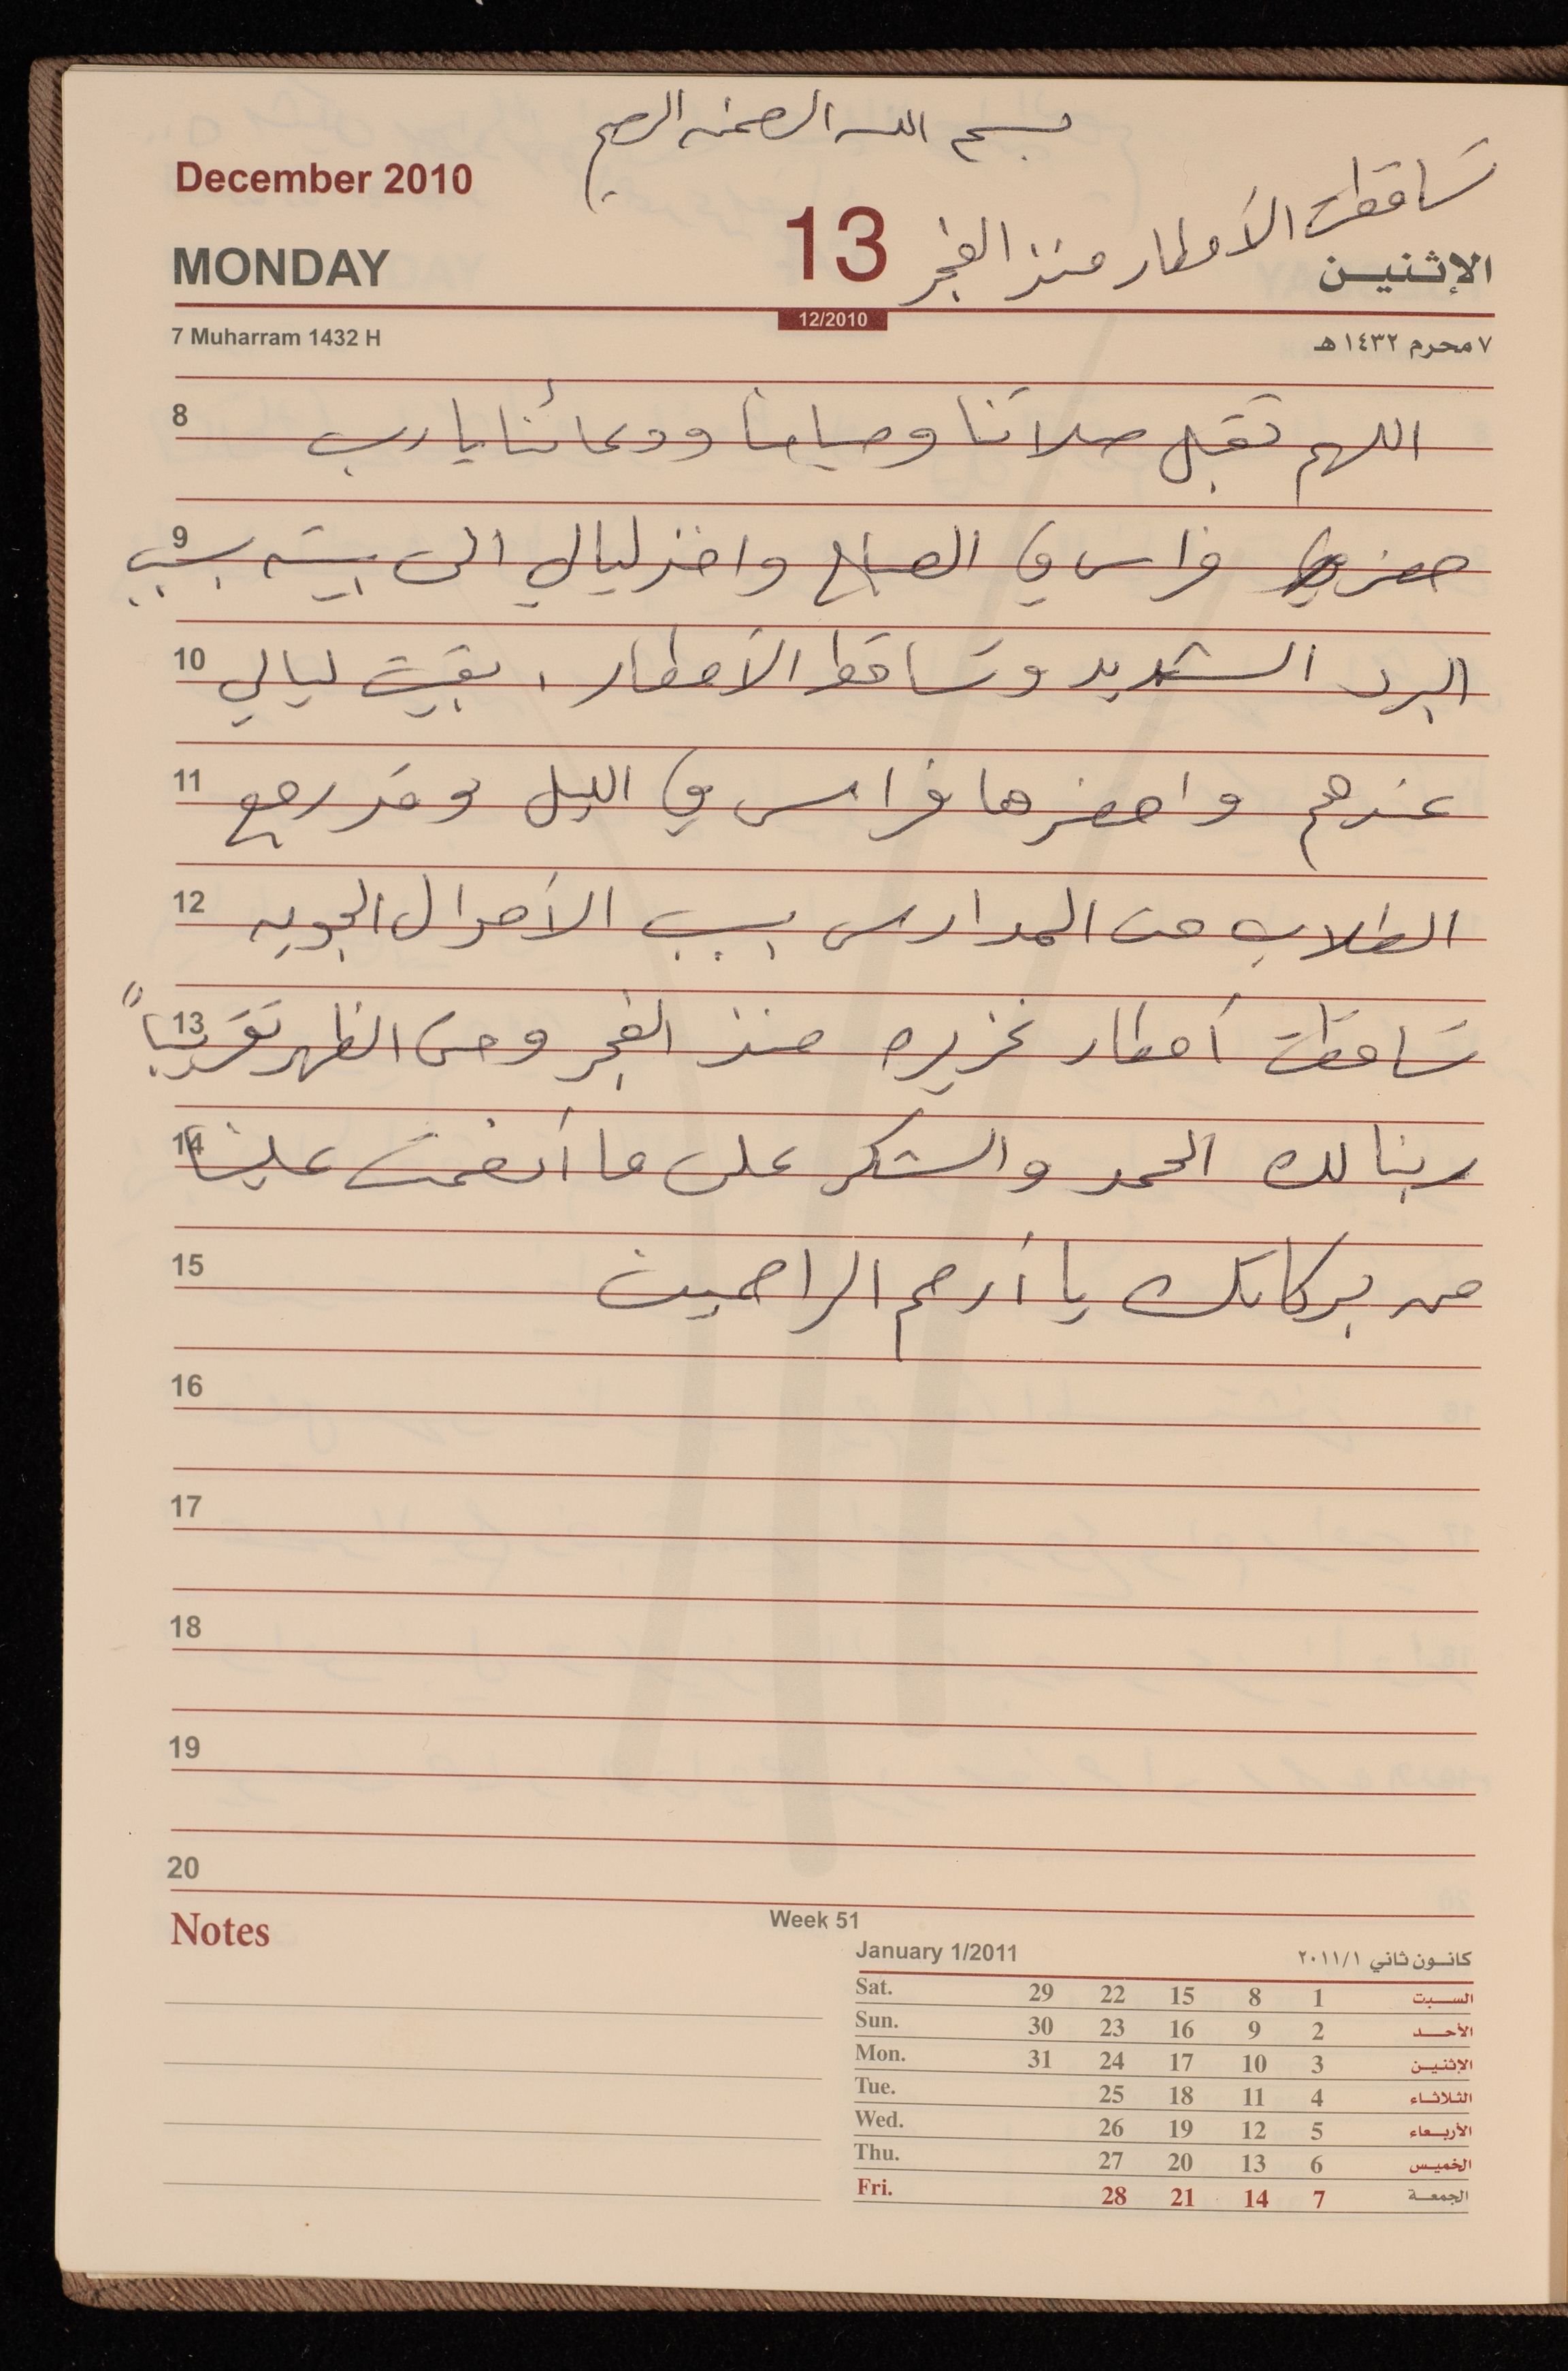 بسم الله الرحمن الرحيم
تساقطت الأمطار منذ الفجر
December 2010
MONDAY 13 الإثنين
12/2010
7 Muharram 1432 H ٧ محرم ١٤٣٢ هـ
8 اللهم تقبل صلاتنا وصيامنا ودعائنا يا رب
9 حضر فراس في الصباح واخذ ليالي الى بيته بسبب
10 البرد الشديد وتساقط الأمطار، بقيت ليالي
11 عندهم واحضرها فراس في الليل وقد رجع
12 الطلاب من المدارس بسبب الأحوال الجويه
13 تساقطت أمطار غزيره منذ الفجر وحتى الظهر تقريباً
14 ربنا لك الحمد والشكر على ما أنعمت علينا
15 من بركاتك يا أرحم الراحمين
16
17
18
19
20
Notes
Week 51
January 1/2011 كانون ثاني ٢٠١١/١
Sat. 29 22 15 8 1 السبت
Sun. 30 23 16 9 2 الأحد
Mon. 31 24 17 10 3 الإثنين
Tue. 25 18 11 4 الثلاثاء
Wed. 26 19 12 5 الأربعاء
Thu. 27 20 13 6 الخميس
Fri. 28 21 14 7 الجمعة